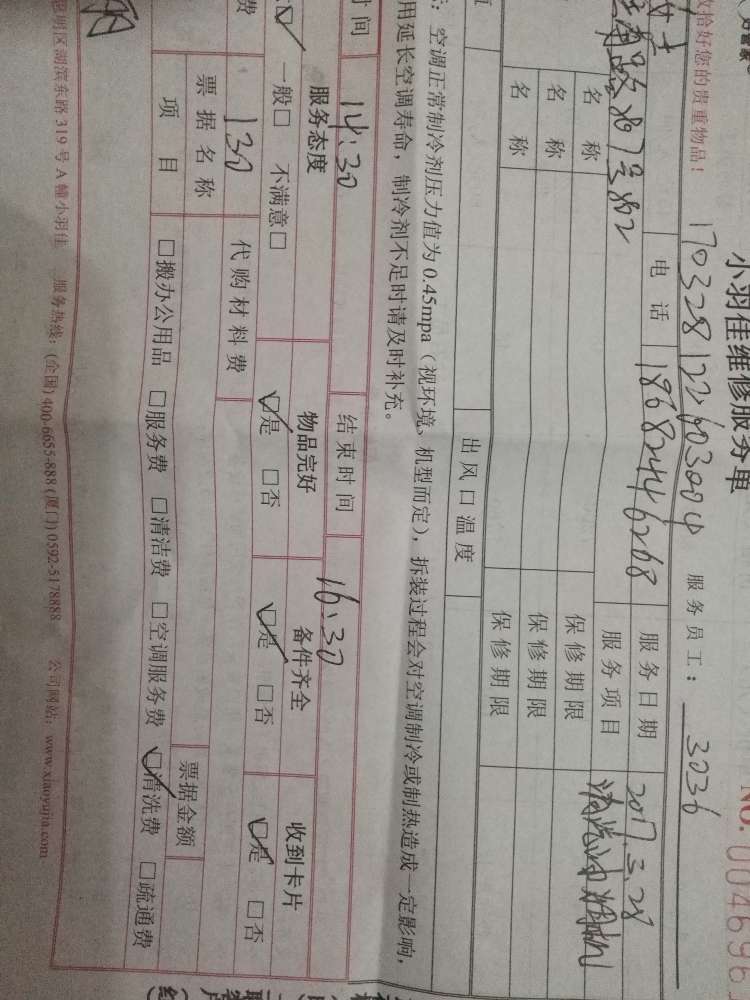 小羽佳维修服务单
NO.0046961
您的贵重物品！ 170328122603004 服务员工： 3036
女士 电话 18682446268 服务日期 2017.3.28
路807号802 服务项目
名称 保修期限
名称 保修期限
名称 保修期限
出风口温度
：空调正常制冷剂压力值为0.45mpa（视环境、机型而定），拆装过程会对空调制冷或制热造成一定影响，
用延长空调寿命，制冷剂不足时请及时补充。
时间 14:30 结束时间 16:30
服务态度 物品完好 备件齐全 收到卡片
☑ 一般□ 不满意□ ☑是 □否 ☑是 □否 ☑是 □否
费 130 代购材料费
票据名称 票据金额
项目 □搬办公用品 □服务费 □清洁费 □空调服务费 ☑清洗费 □疏通费
明区湖滨东路319号A幢小羽佳 服务热线：(全国)400-6655-888 (厦门)0592-5178888 公司网站：www.xiaoyujia.com